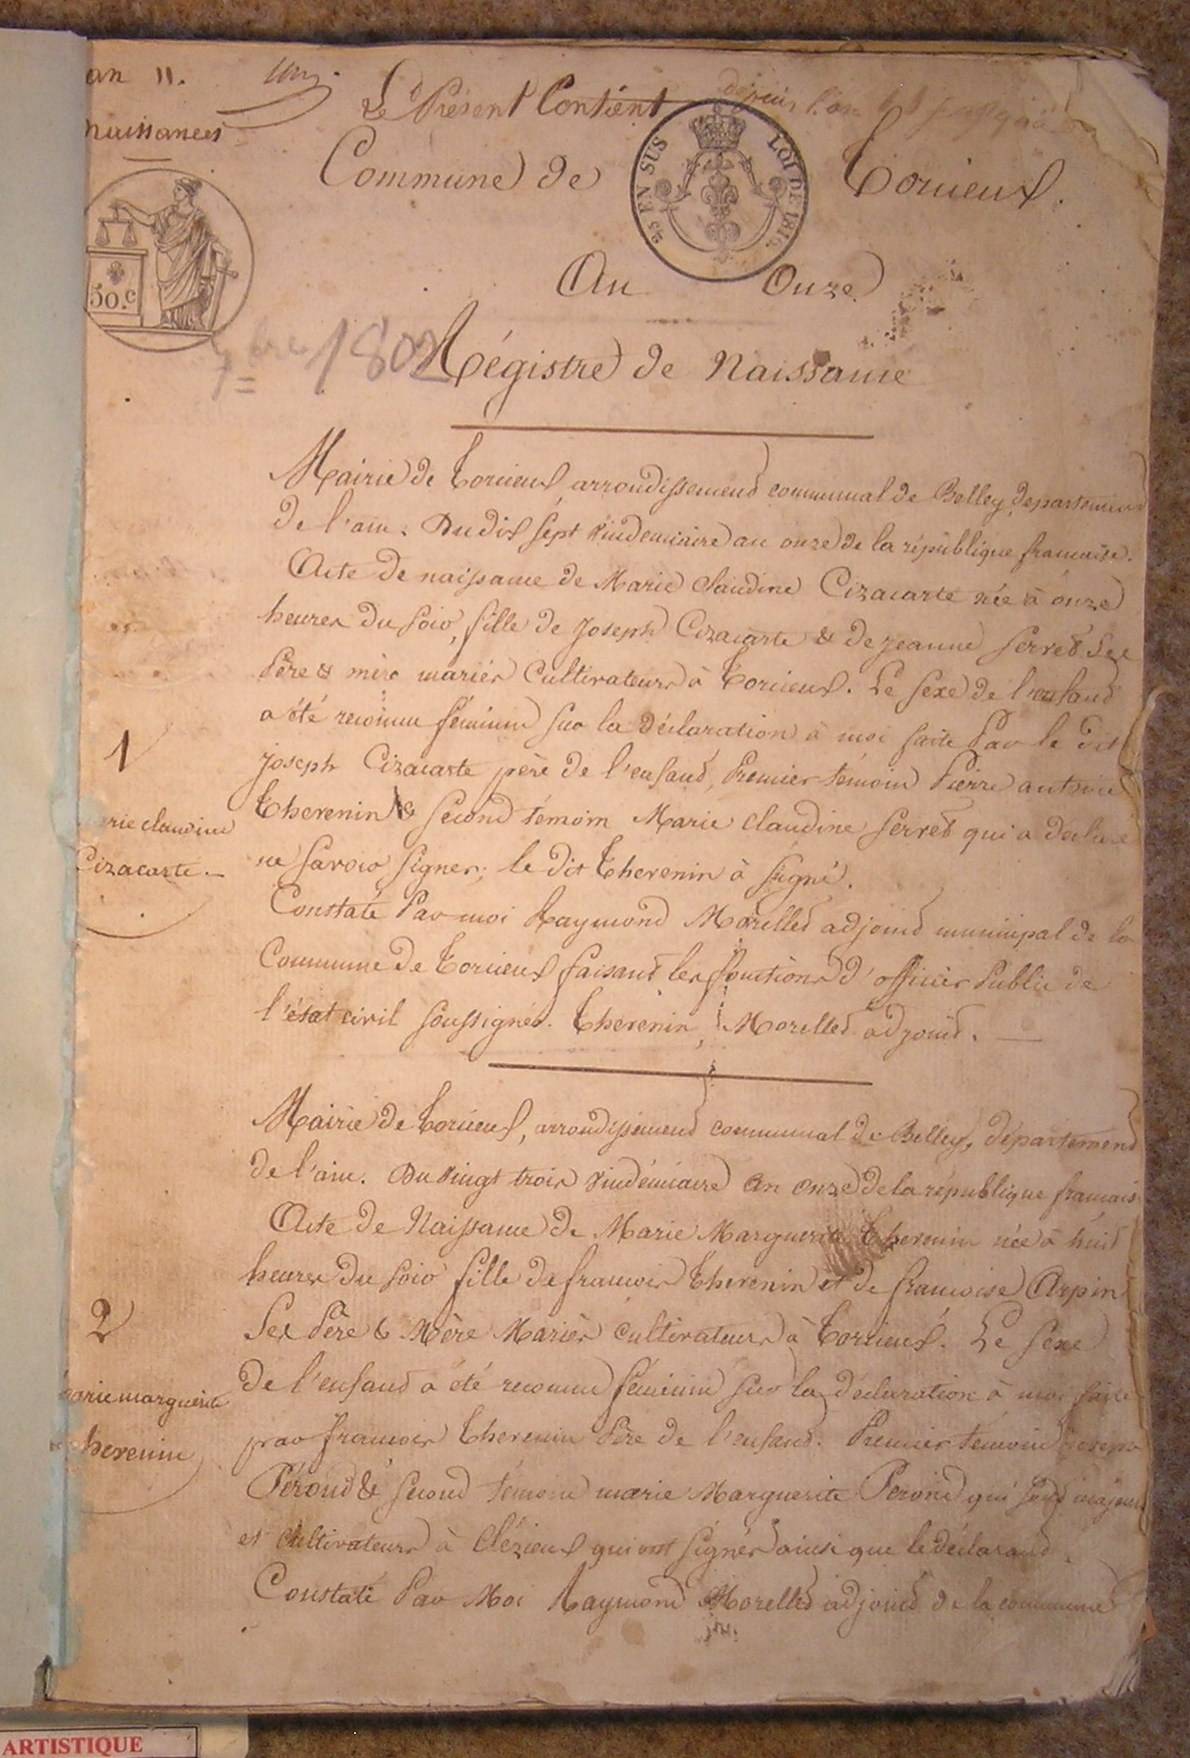 an 11.
naissances
Le Présent Contient depuis l'an
25 EN SUS LOI DE 1816.
Commune de Torcieux.
50.c
An Onze
1802
Régistre de Naissance
Mairie de Torcieux arrondissement communal de Belley departement
de l'ain. Du dix sept vindemiaire an onze de la république francaise.
Acte de naissance de Marie Claudine Cizacarte née à onze
heures du soir, fille de Joseph Cizacarte & de jeanne serret ses
Père & mère mariés Cultivateurs à Torcieux. Le sexe de l'enfant
a été reconnu féminin sur la déclaration à moi faite Par le dit
joseph Cizacarte père de l'enfant, Premier témoin Pierre antoine
Therenin & second témoin Marie claudine serret qui a déclaré
ne savoir signer; le dit Therenin à signé.
1
marie claudine
Cizacarte.
Constaté Par moi Raymond Morellet adjoint municipal de la
Commune de Torcieux faisant les fonctions d'officier Public de
l'état civil soussignés. Therenin, Morellet adjoint.
Mairie de Torcieux, arrondissement communal de Belley, département
de l'ain. Du vingt trois vindémiaire an onze de la république francais
Acte de Naissance de Marie Marguerite Therenin née à huit
heures du soir fille de francois Therenin et de francoise Arpin
Ses Père & Mère Mariés cultivateurs à Torcieux. Le sexe
de l'enfant a été reconnu féminin sur la déclaration à moi faite
par francois Therenin Père de l'enfant. Premier temoin joseph
Péroud & second témoin marie Marguerite Peroud qui sont majeurs
et cultivateurs à Clézieux qui ont signés ainsi que le déclarant.
2
marie marguerite
therenin
Constaté Par Moi Raymond Morellet adjoint de la commune
ARTISTIQUE